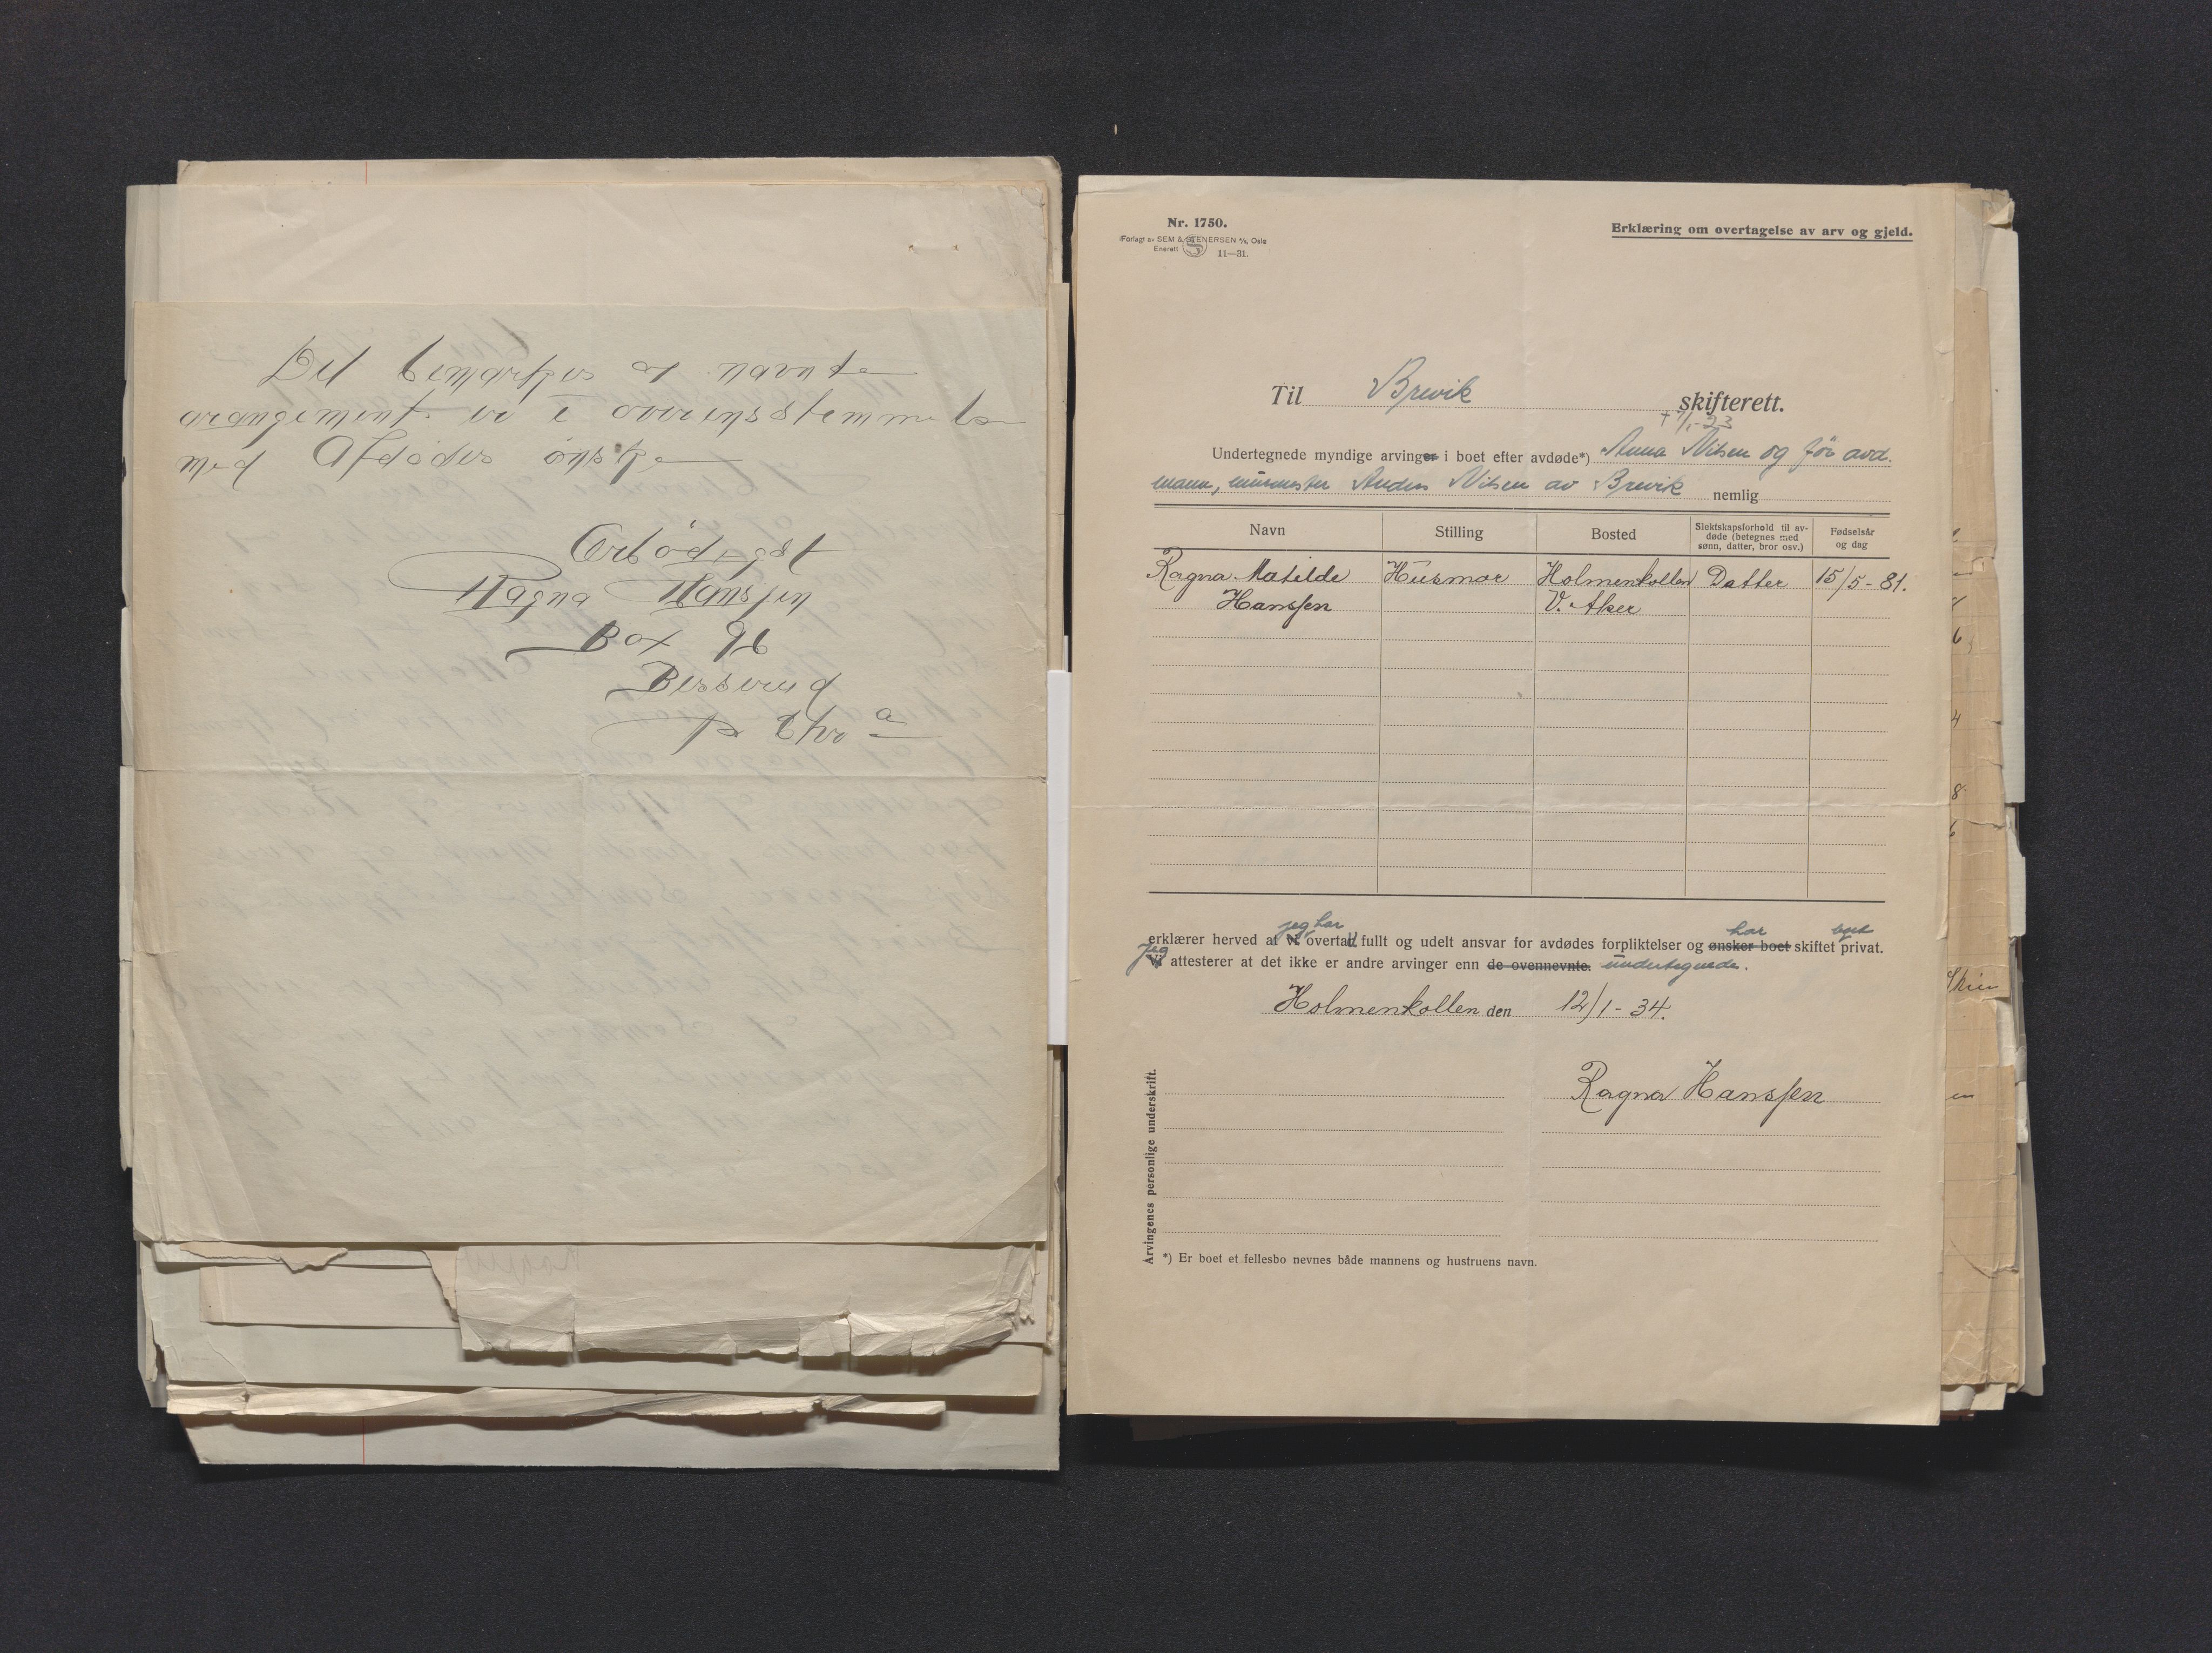 Det bemærkes at navnte
arangement er i overensstemmelse
med Afdødes ønske
Erbødigst
Ragna Hanssen
Box 96
Besserud
pr Chra
Nr. 1750.
Forlagt av SEM & STENERSEN A/S, Oslo
Enerett
11—31.
Erklæring om overtagelse av arv og gjeld.
Til Brevik skifterett.
+ 7/1-23
Undertegnede myndige arvinger i boet efter avdøde*) Anna Nilsen og før avd.
mann, murmester Anders Nilsen av Brevik nemlig
Navn Stilling Bosted Slektskapsforhold til avdøde (betegnes med sønn, datter, bror osv.) Fødselsår og dag
Ragna Matilde Husmor Holmenkollen Datter 15/5-81.
Hanssen V. Aker
jeg har har boet
erklærer herved at vi overtar fullt og udelt ansvar for avdødes forpliktelser og ønsker boet skiftet privat.
Jeg
Vi attesterer at det ikke er andre arvinger enn de ovennevnte. undertegnede.
Holmenkollen den 12/1-34.
Ragna Hanssen
Arvingenes personlige underskrift.
*) Er boet et fellesbo nevnes både mannens og hustruens navn.